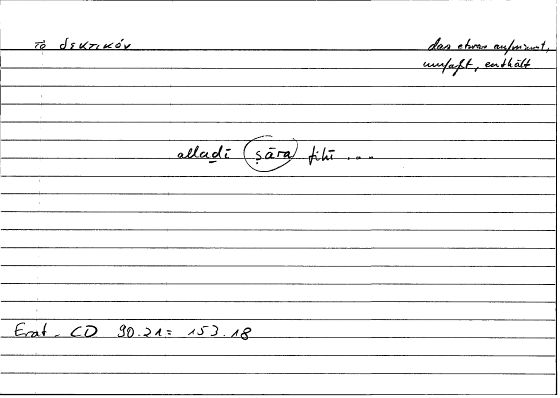 τὸ δεκτικόν
das etwas aufnimmt,
umfaßt, enthält
allaḏī ṣāra fīhi ...
Erat. CD 90.21 = 153.18